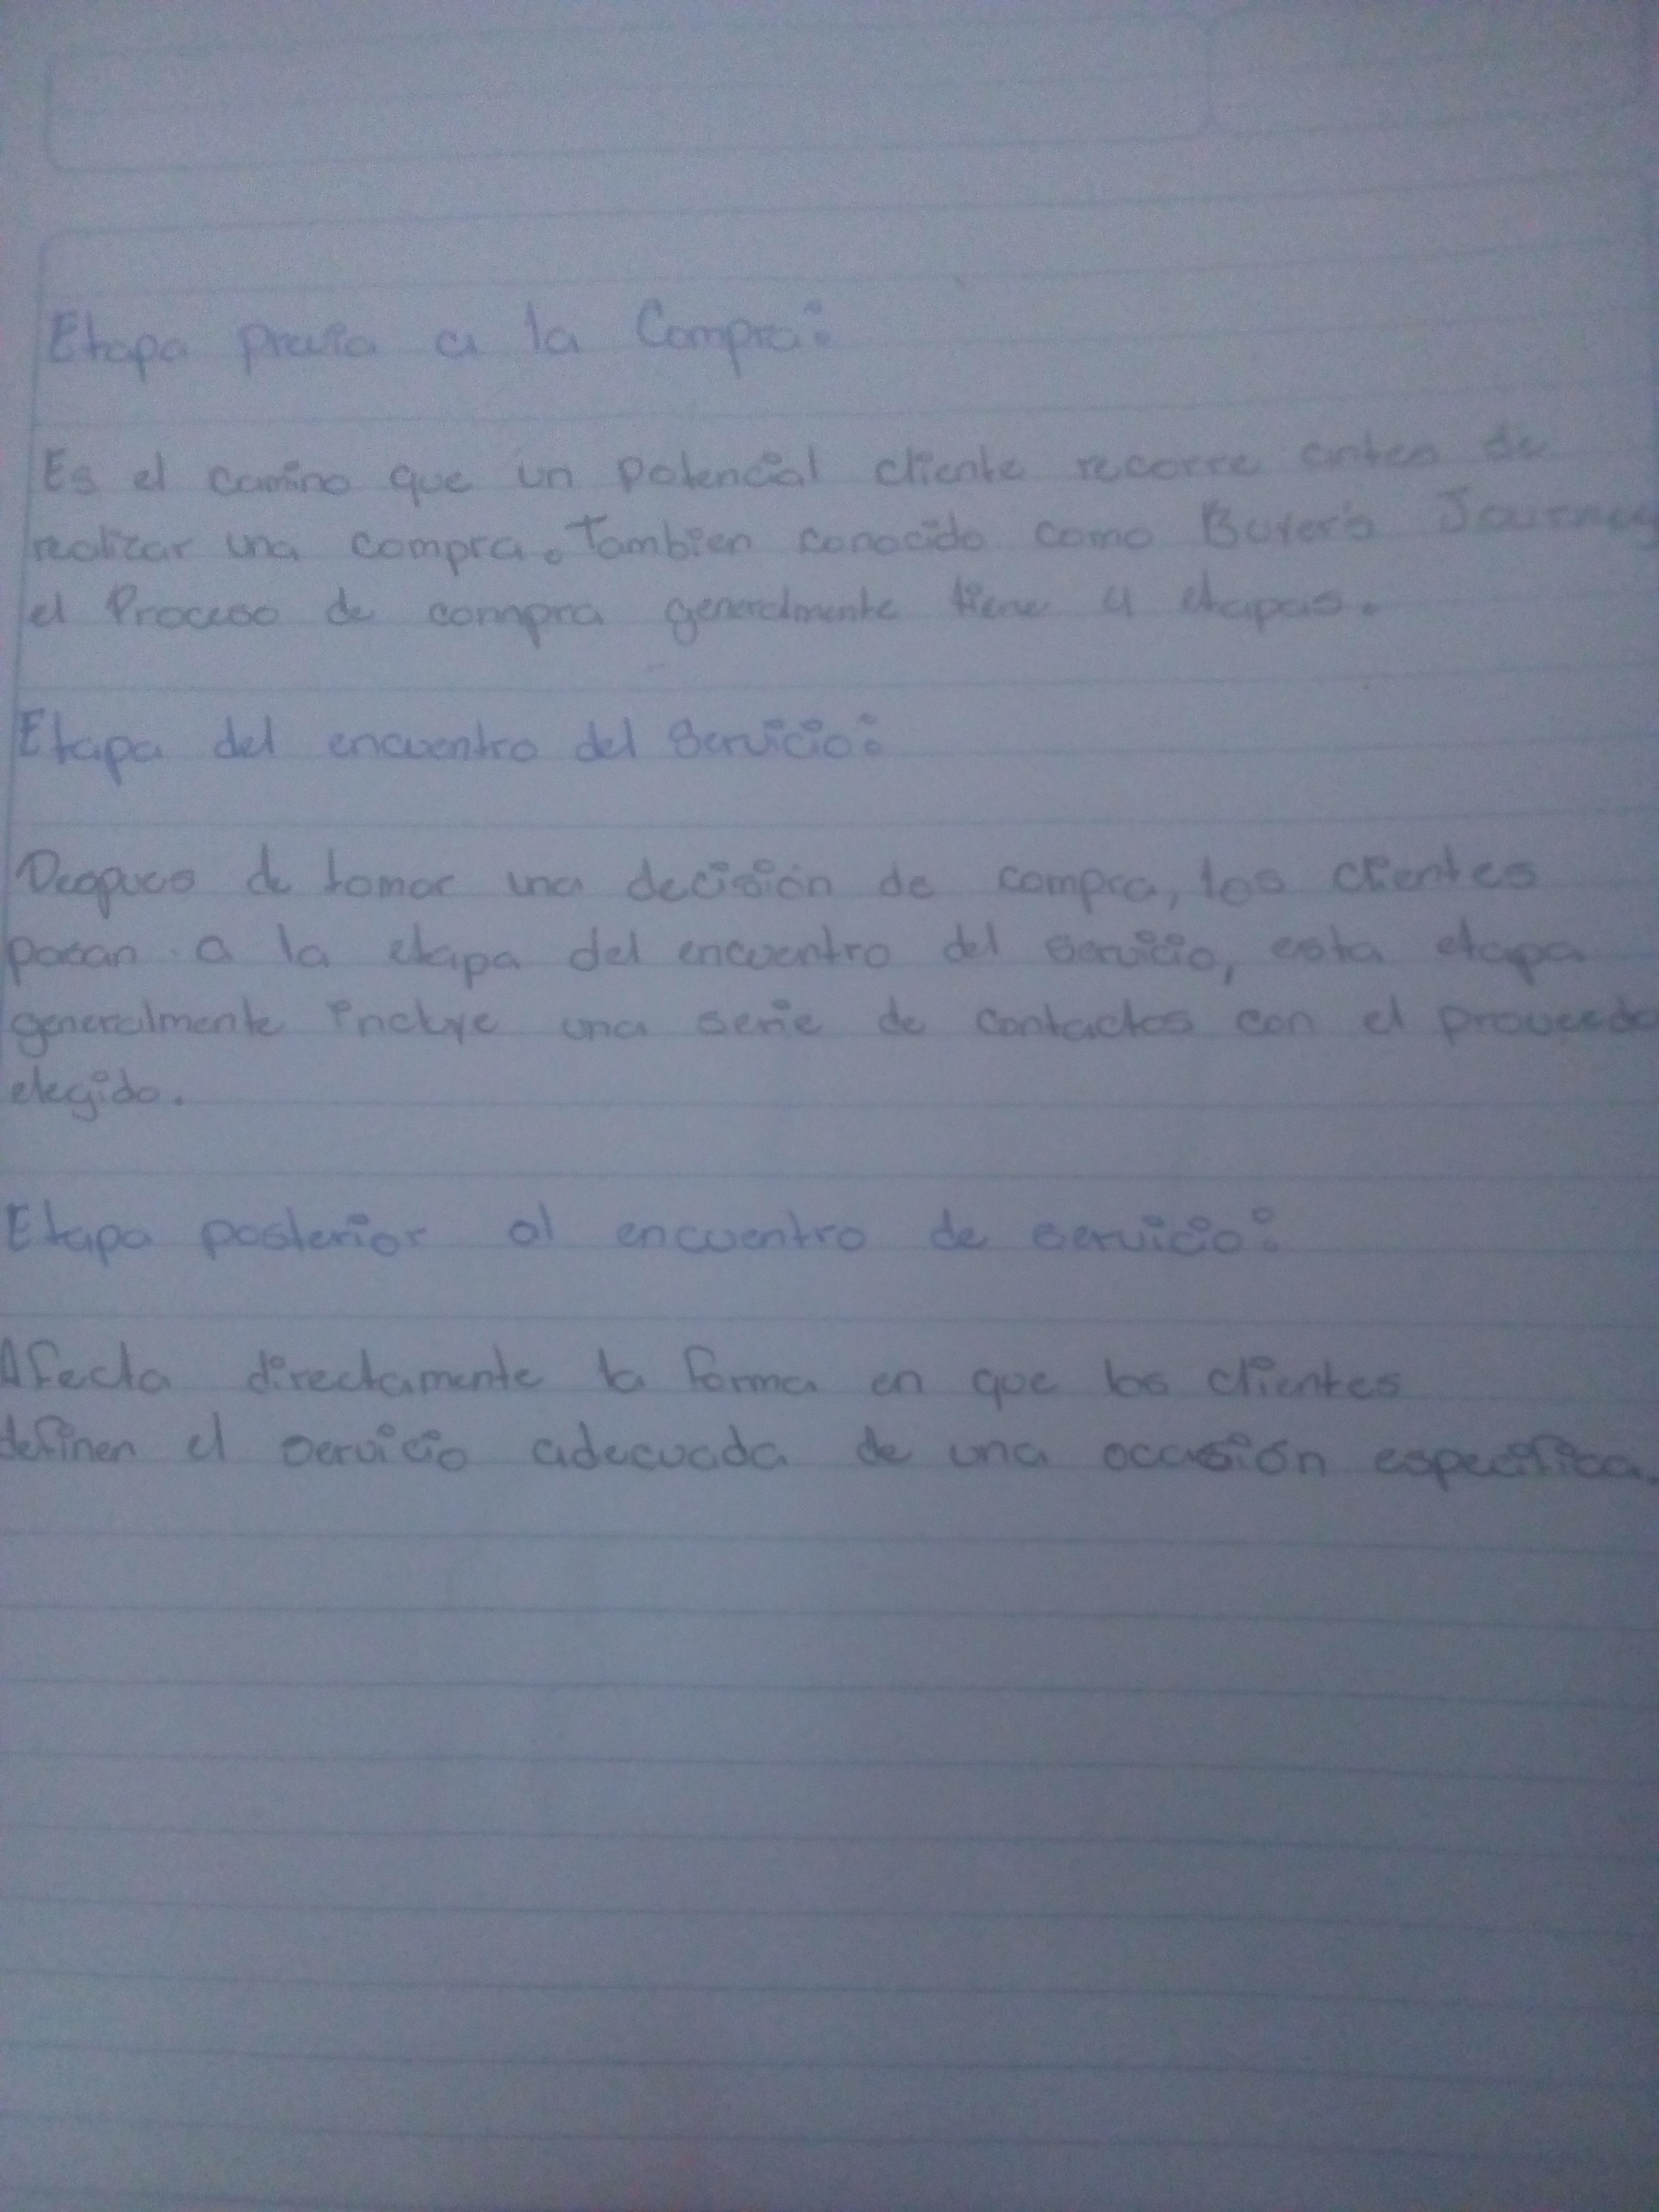 Etapa previa a la Compra:
Es el camino que un potencial cliente recorre antes de
realizar una compra. Tambien conocido como Buyer's Journey
el Proceso de compra generalmente tiene 4 etapas.
Etapa del encuentro del Servicio:
Despues de tomar una decisión de compra, los clientes
pasan a la etapa del encuentro del servicio, esta etapa
generalmente incluye una serie de contactos con el proveedo
elegido.
Etapa posterior al encuentro de servicio:
Afecta directamente la forma en que los clientes
definen el servicio adecuada de una ocasión especifica.